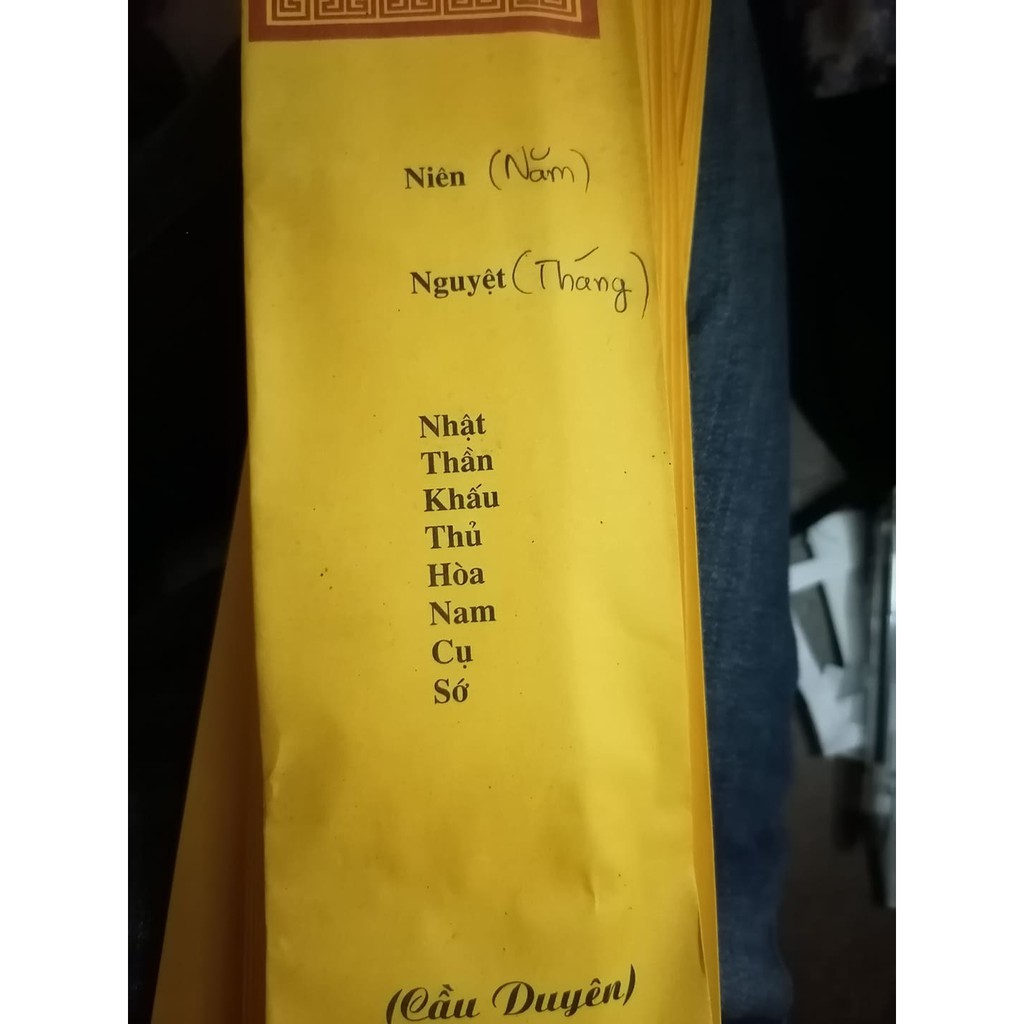 Niên (Năm)
Nguyệt (Tháng)
Nhật
Thần
Khấu
Thủ
Hòa
Nam
Cụ
Sớ
(Cầu Duyên)